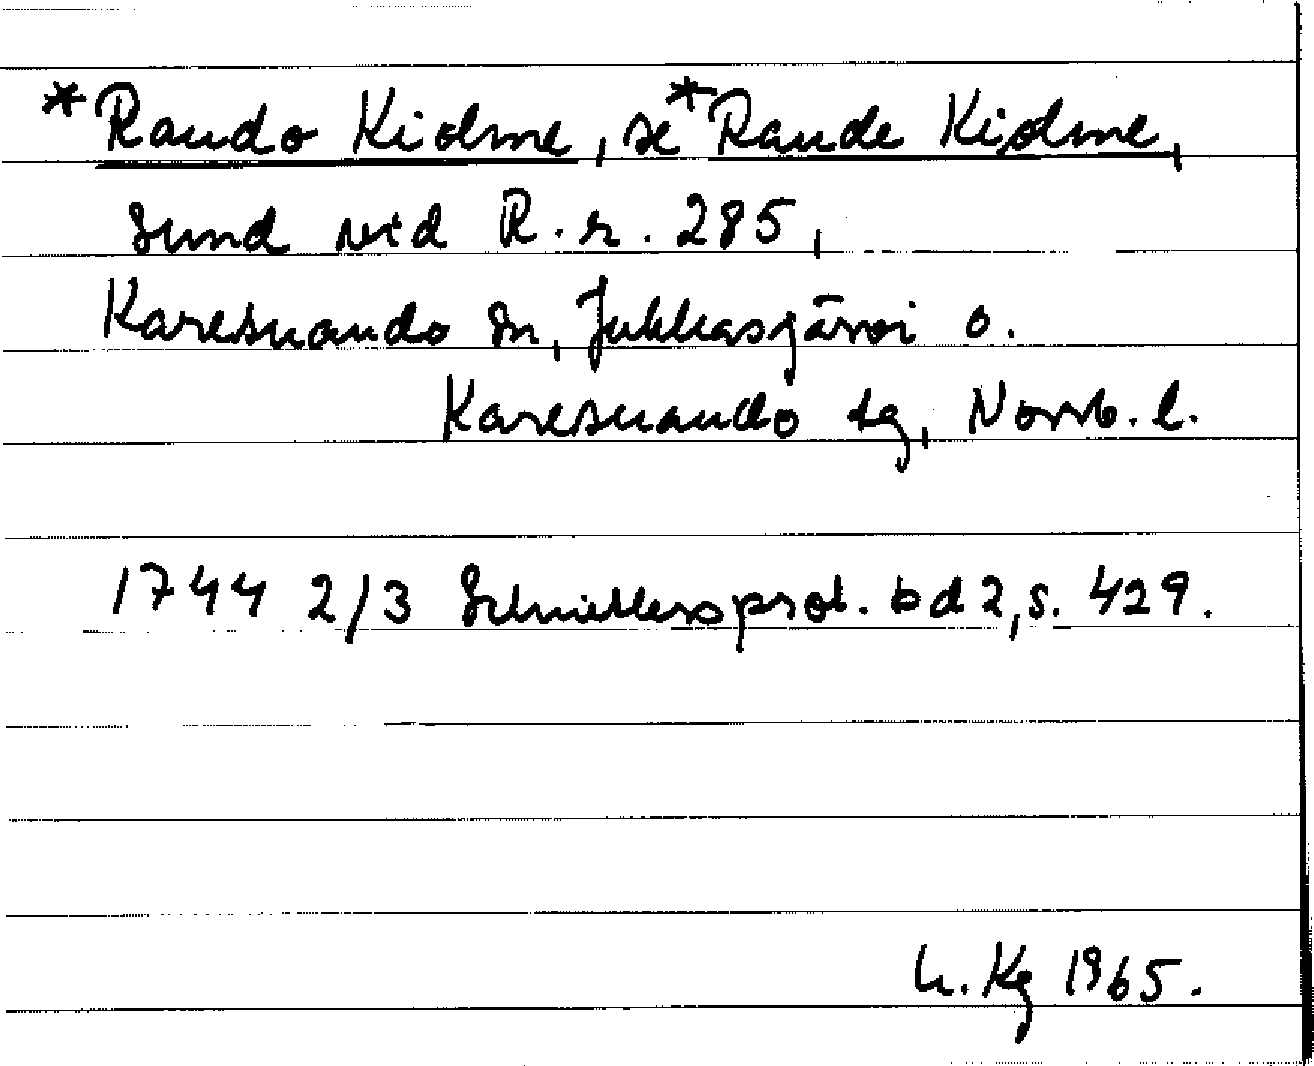 *Raudo Kidme, se *Raude Kidme,
sund vid R.r. 285,
Karesuando sn, Jukkasjärvi o.
Karesuando tg, Norrb. l.
1744 2/3 Schnitlers prot. bd 2, s. 429.
Kg 1965.